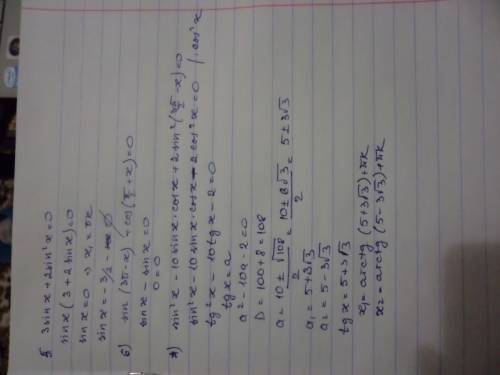 5 3sinx+2sin²x=0
sinx(3+2sinx)=0
sinx=0 => x₁=πk
sinx=-3/2 - ∅
б) sin(3π-x)+cos(π/2+x)=0
sinx-sinx=0
0=0
sin²x-10sinx·cosx+2sin²(3π/2-x)=0
sin²x-10sinx·cosx-2cos²x=0 /:cos²x
tg²x-10tgx-2=0
tgx=a
a²-10a-2=0
D=100+8=108
a=10±√108/2=10±6√3/2=5±3√3
a₁=5+3√3
a₂=5-3√3
tgx=5+3√3
x₁=arctg(5+3√3)+πk
x₂=arctg(5-3√3)+πk